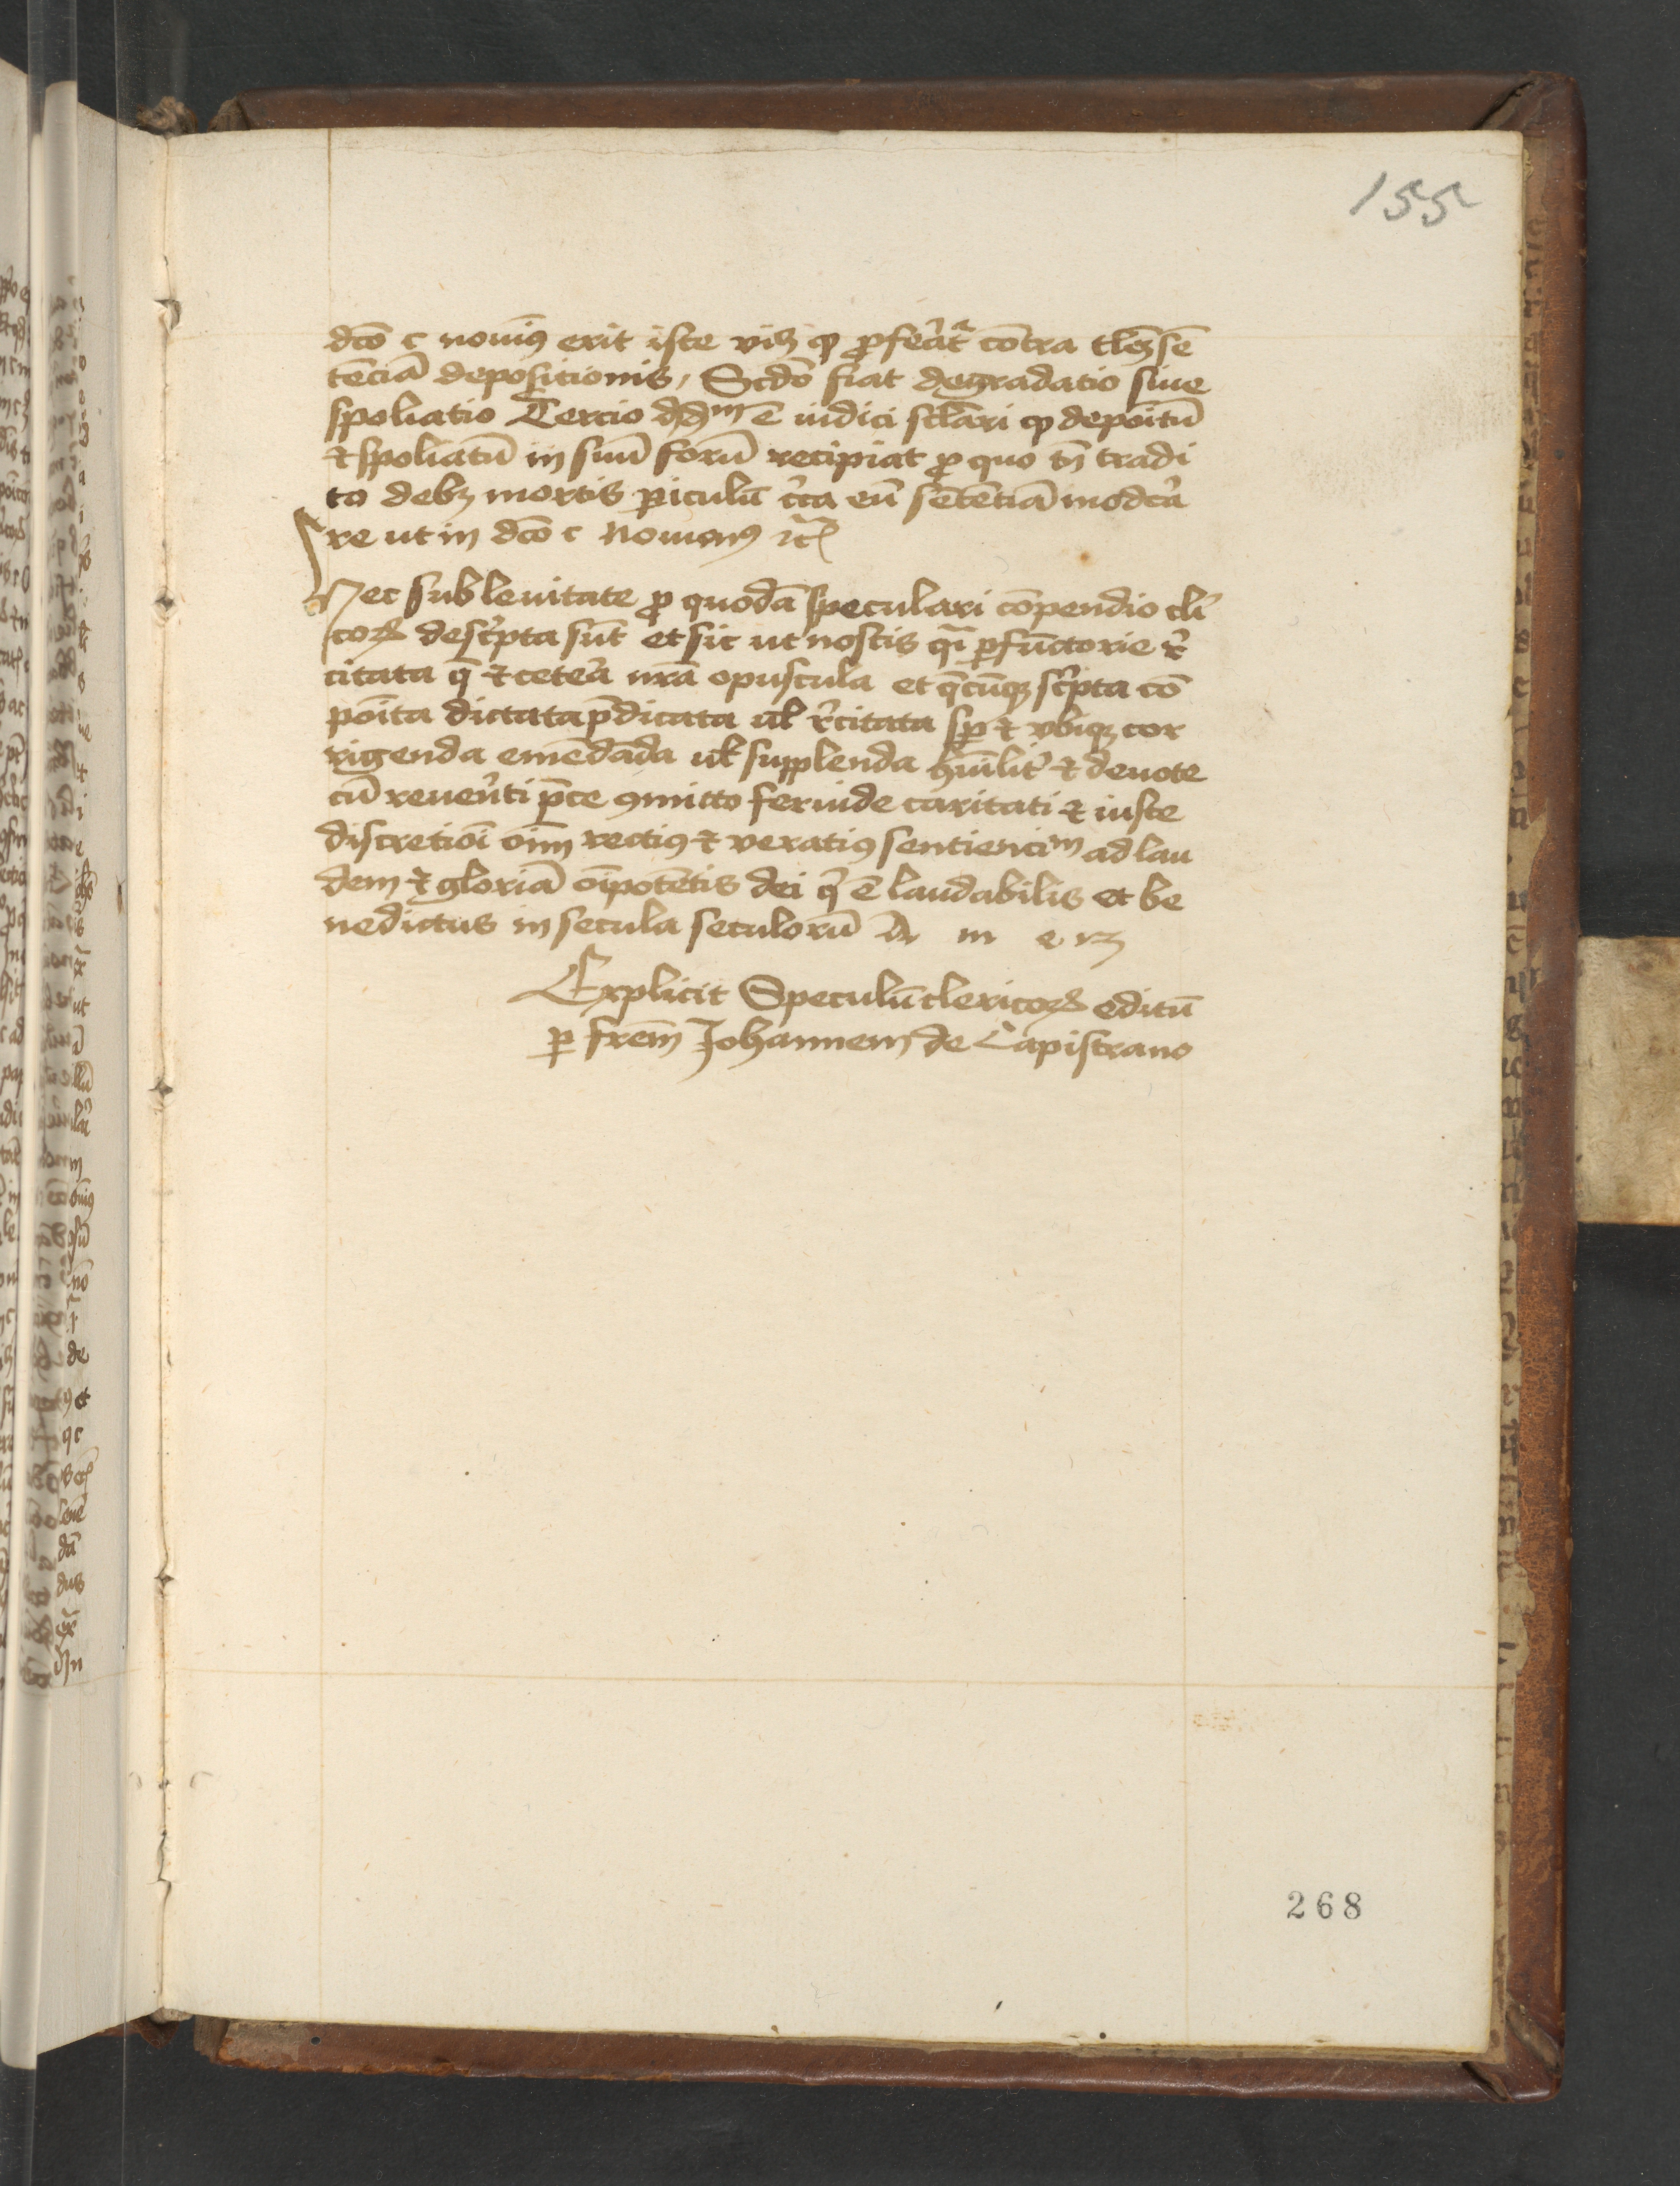 155
dc̄o c nouim9 erit iste viꝫ ꝙ ꝓferat̉ cōtra tl̄eꝫ sē
tēciā depositionis, Scdō fiat degradatio siue
spoliatio Tercio dꝺᵐ ē iudici sclāri ꝙ depoītū
⁊ spoliatū in suū forū recipiat ꝓ quo tn̄ tradi
to debꝫ mortis ꝑiculū c̉ca eū sētētiā modẻa
re ut in dc̄o c Nouim9 ⁊c̄
Nec sub leuitate ꝓ quodā speculari cōpendio cl̉i
coꝝ desc̉pta sūt et sic ut nostis qī ꝑfūctorie r̉
citata q̄ ⁊ cetera nr̄a opuscula et q̄cūqꝫ sc̉pta cō
poīta dictata p̄dicata ul̄ r̉citata sꝑ ⁊ vbiqꝫ cor
rigenda emēdāda ul̄ supplenda hūilit̉ ⁊ deuote
cū reuer̉ti p̄ce ꝯmitto feruide caritati ⁊ iuste
discretiōi oīm recti9 ⁊ verati9 sentienciᵐ ad lau
dem ⁊ gloriā oīpotētis dei q̉ ē laudabilis et be
nedictus in secula seculorū A m e n
Explicit Speculū clericoꝝ editū
ꝑ frēm Johannem de Capistrano
268